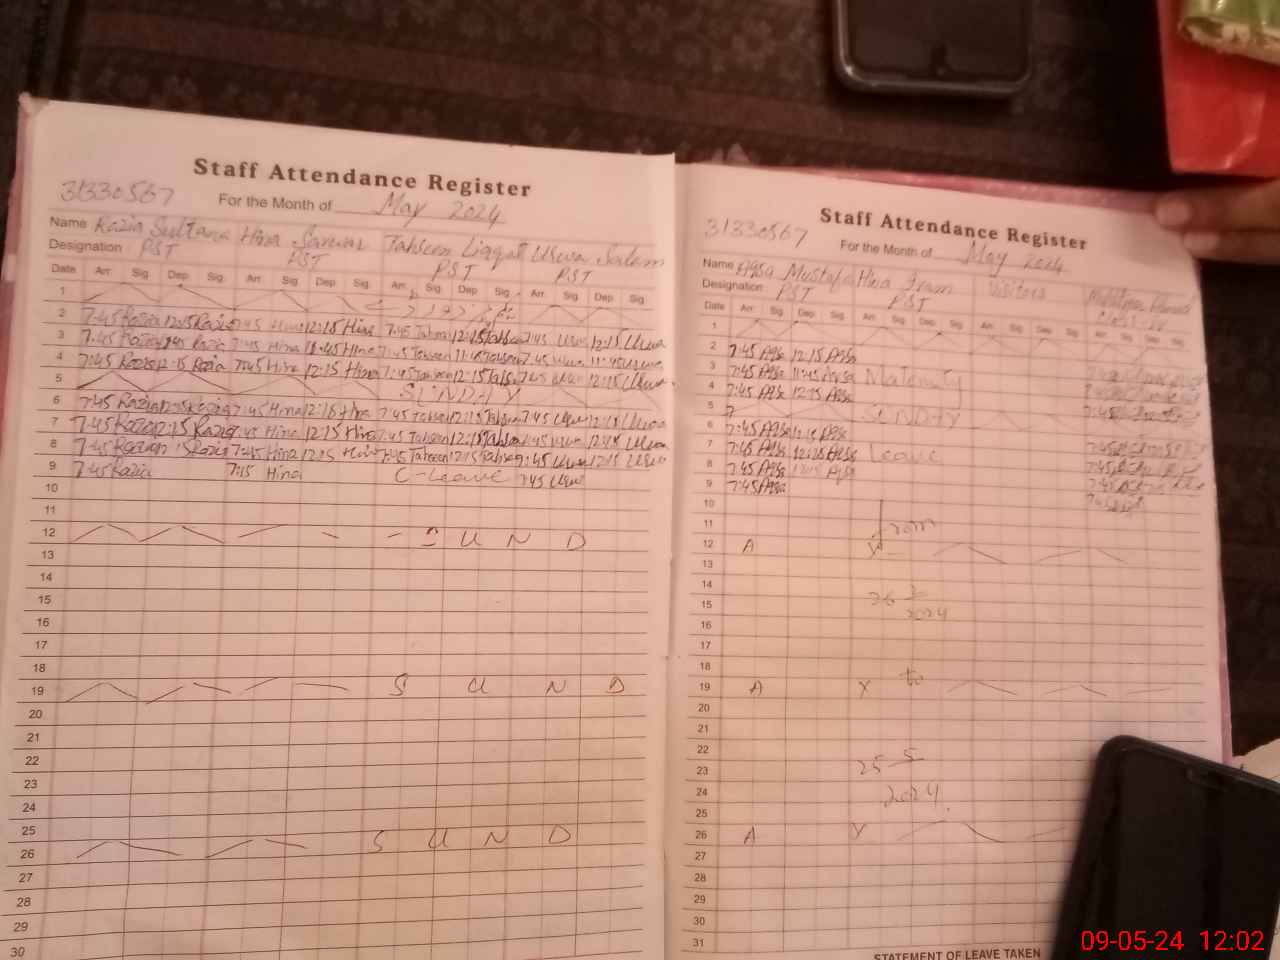 Staff Attendance Register
31330567 For the Month of May 2024
Name Razia Sultana Hina Sarwar Tahseen Liaqat Uswa Salam
Designation PST PST PST PST
Date Arr Sig. Dep Sig. Arr Sig. Dep Sig. Arr. Sig. Dep Sig. Arr. Sig. Dep Sig.
1
2 7:45 Razia 12:15 Razia 7:45 Hina 12:15 Hina 7:45 Tahseen 12:15 7:45 Uswa 12:15 Uswa
3 7:45 Razia 11:45 Razia 7:45 Hina 11:45 Hina 7:45 Tahseen 11:45 Tahseen 7:45 Uswa 11:45 Uswa
4 7:45 Razia 12:15 Razia 7:45 Hina 12:15 Hina 7:45 Tahseen 12:15 7:45 Uswa 12:15 Uswa
5 SUNDAY
6 7:45 Razia 12:15 Razia 7:45 Hina 12:15 Hina 7:45 Tahseen 12:15 Tahseen 7:45 Uswa 12:15 Uswa
7 7:45 Razia 12:15 Razia 7:45 Hina 12:15 Hina 7:45 Tahseen 12:15 7:45 Uswa 12:15 Uswa
8 7:45 Razia 12:15 Razia 7:45 Hina 12:15 Hina 7:45 Tahseen 12:15 7:45 Uswa 12:15 Uswa
9 7:45 Razia 7:15 Hina C-Leave 7:45 Uswa
10
11
12 S U N D
13
14
15
16
17
18
19 S U N D
20
21
22
23
24
25
26 S U N D
27
28
29
30
Staff Attendance Register
31330567 For the Month of May 2024
Name Aqsa Mustafa Hina Iram Visitors
Designation PST PST
Date Arr Sig Dep Sig Arr Sig Dep Sig Arr Sig Dep Sig. Arr Sig. Dep Sig.
1
2 7:45 Aqsa 12:15 Aqsa
3 7:45 Aqsa 11:45 Aqsa Maternity
4 7:45 Aqsa 12:15 Aqsa
5 SUNDAY
6 7:45 Aqsa 12:15 Aqsa
7 7:45 Aqsa 12:15 Aqsa Leave
8 7:45 Aqsa 12:15 Aqsa
9 7:45 Aqsa
10
11 From
12 A Y
13
14
15 2024
16
17
18
19 A Y to
20
21
22
23 25 5
24 2024
25
26 A Y
27
28
29
30
31
STATEMENT OF LEAVE TAKEN
09-05-24 12:02